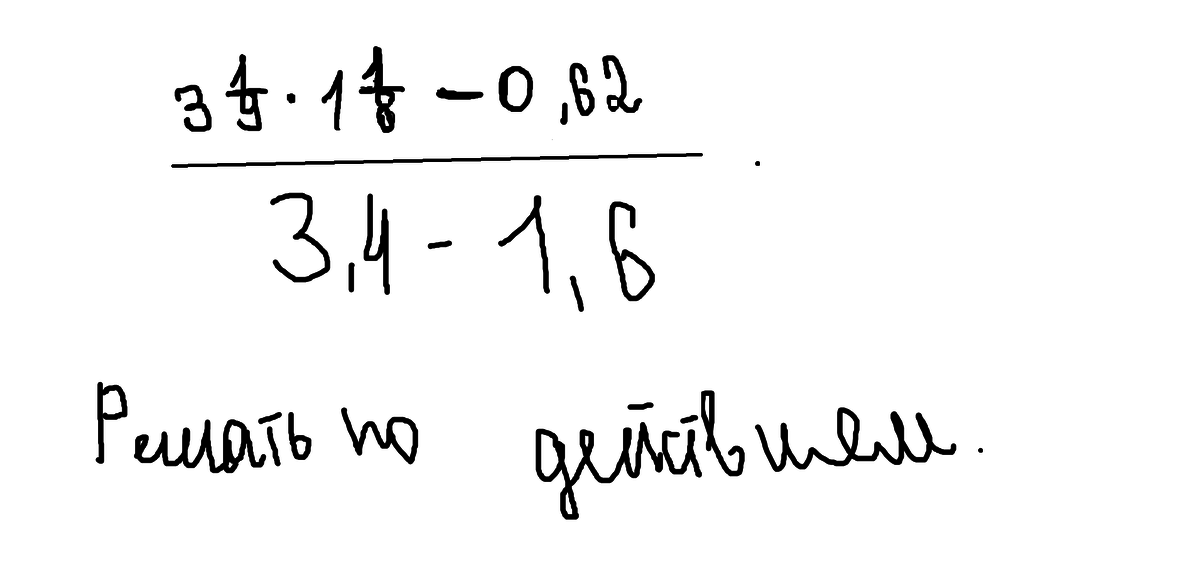 3 1/9 · 1 1/8 - 0,62
3,4 - 1,6
Решать по действием.